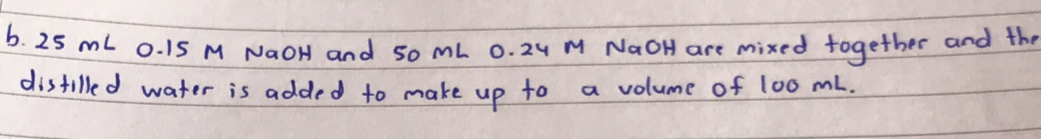 b. 25 mL 0.15 M NaOH and 50 mL 0.24 M NaOH are mixed together and the
distilled water is added to make up to a volume of 100 mL.